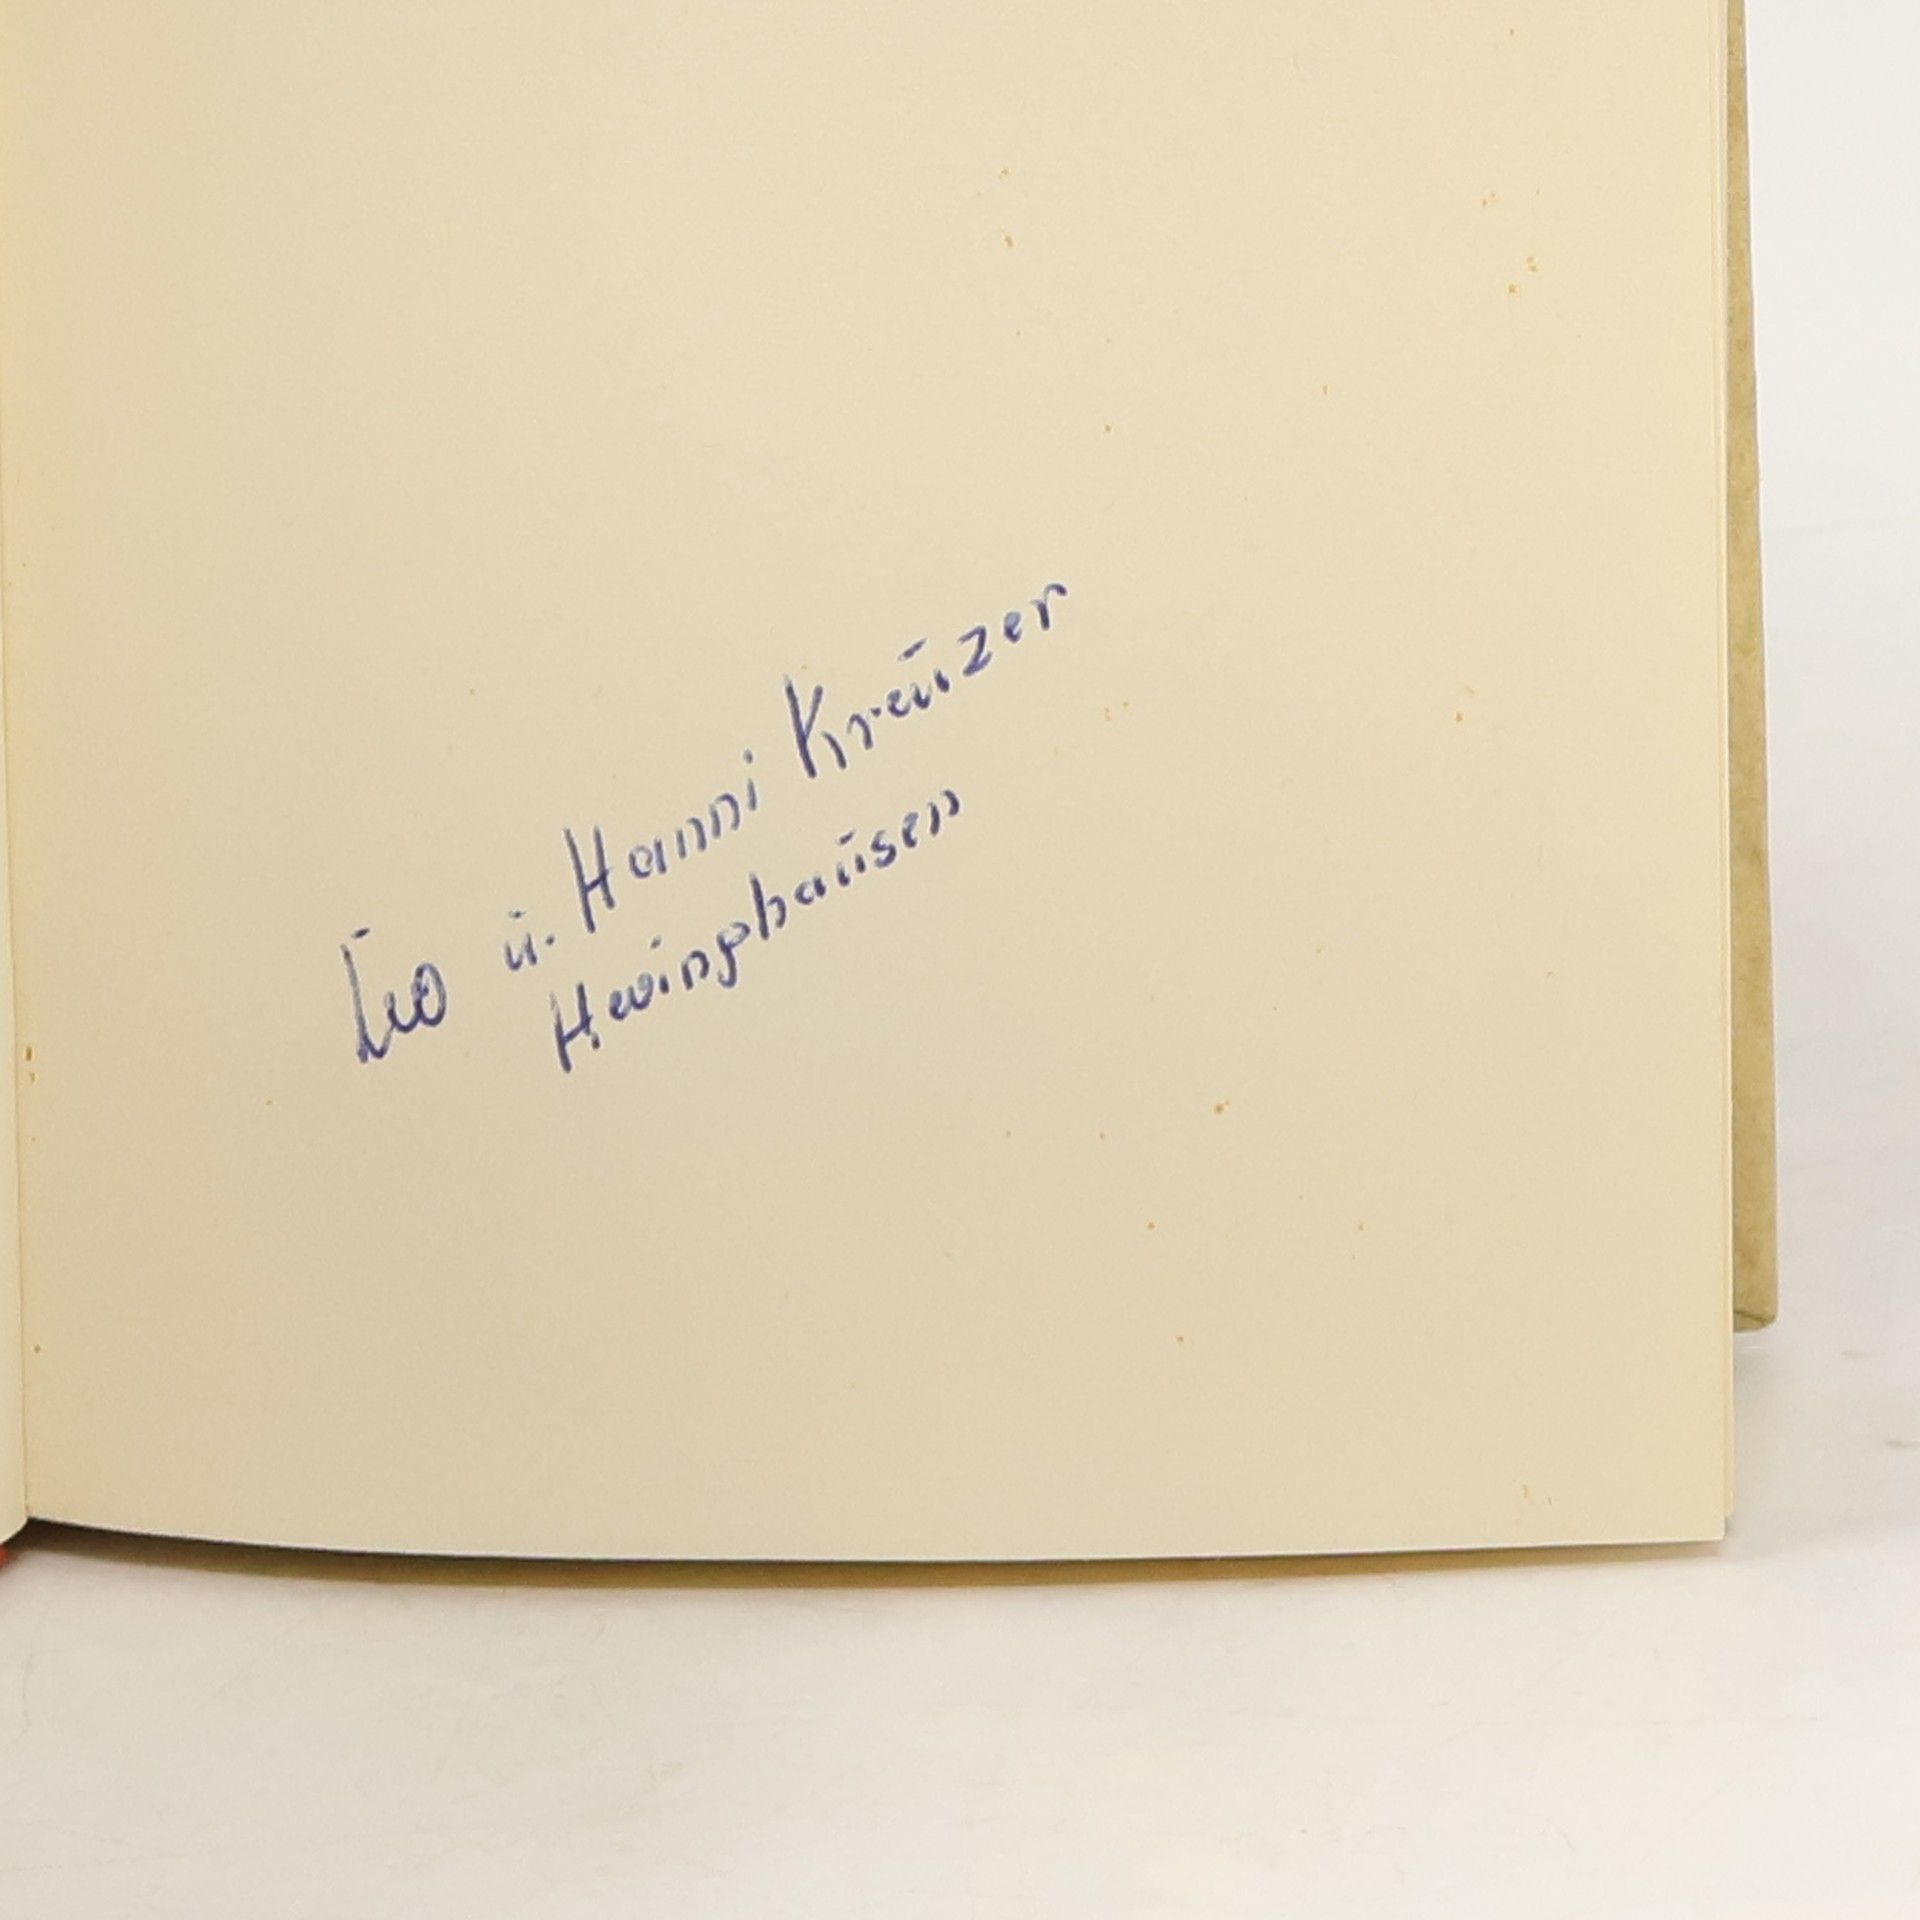 Leo u. Hanni Kreuzer
Hevinghausen